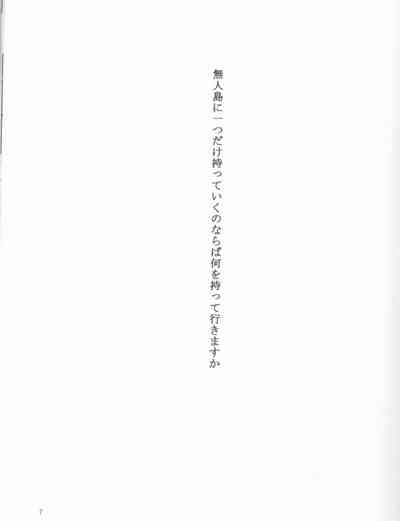 無人島に一つだけ持っていくのならば何を持って行きますか
7